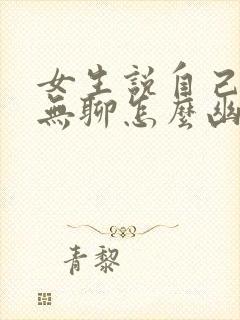 女生說自己
無聊怎麼幽
青黎